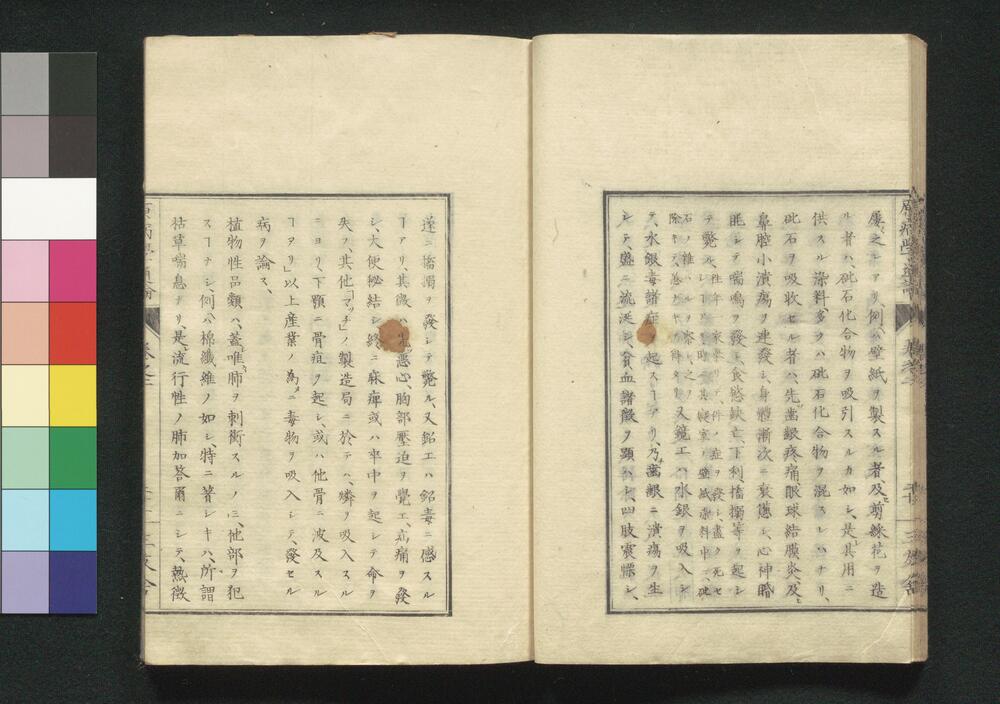 屢之レアリ、例ハ壁紙ヲ製スル者、及剪綵花ヲ造
ル者ハ砒石化合物ヲ吸引スルカ如シ、是其用ニ
供スル染料、多クハ砒石化合物ヲ混スレハナリ、
砒石ヲ吸收セル者ハ、先齒齦疼痛、眼球結膜炎、及
鼻腔小潰瘍ヲ連發シ、身體漸次ニ衰憊シ、心神昏
眊シテ喘鳴ヲ發シ、食慾缺亡、下利、搐搦等ヲ起シ
テ斃ル
テ、水銀毒諸症ヲ起スヿアリ、乃齒齦ニ潰瘍ヲ生
シテ、盛ニ流涎シ、貧血諸徴ヲ顯ハシ、四肢震慄シ、
遂ニ搐搦ヲ發シテ斃ル、又鉛工ハ鉛毒ニ感スル
ヿアリ、其徴ハ惡心、胸部壓迫ヲ覺エ、疝痛ヲ發
シ、大便秘結シ、終ニ麻痺或ハ卒中ヲ起シテ命ヲ
失フ、其他「マッチ」ノ製造局ニ於テハ、燐ヲ吸入スル
ニヨリ、下顎ニ骨疽ヲ起シ、或ハ他骨ニ波及スル
ヿアリ」以上産業ノ爲ニ毒物ヲ吸入シテ、發セル
病ヲ論ス、
植物性品類ハ、蓋唯肺ヲ刺衝スルノミ、他部ヲ犯
スヿナシ、例ハ棉纖維ノ如シ、特ニ著シキハ、所謂
枯草喘息ナリ、是流行性ノ肺加答爾ニシテ、熱徴